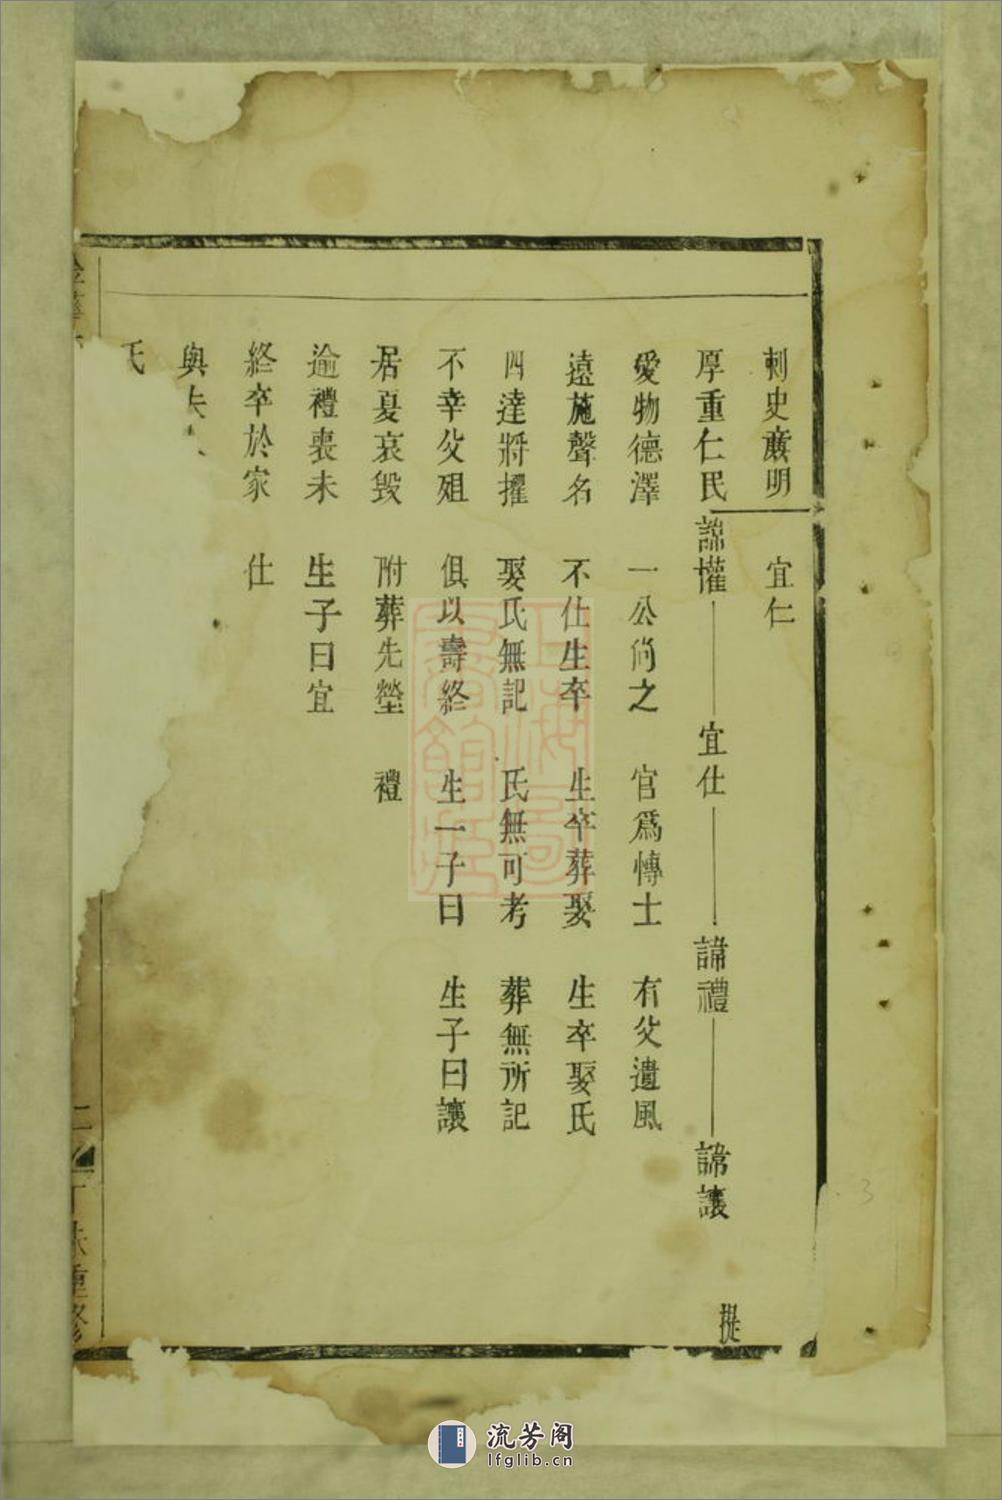 刺史廉明
厚重仁民
愛物德澤
遠施聲名
四達將擢
不幸父殂
居夏哀毀
逾禮喪未
終卒於家
與夫
氏
宜仁
諱權
一公尚之
不仕生卒
娶氏無記
俱以壽終
附葬先塋
生子曰宜
仕
宜仕
官爲愽士
生卒葬娶
氏無可考
生一子曰
禮
諱禮
有父遺風
生卒娶氏
葬無所記
生子曰讓
諱讓
提
二
丁未重修
上海圖書館藏
3
流芳阁
lfglib.cn